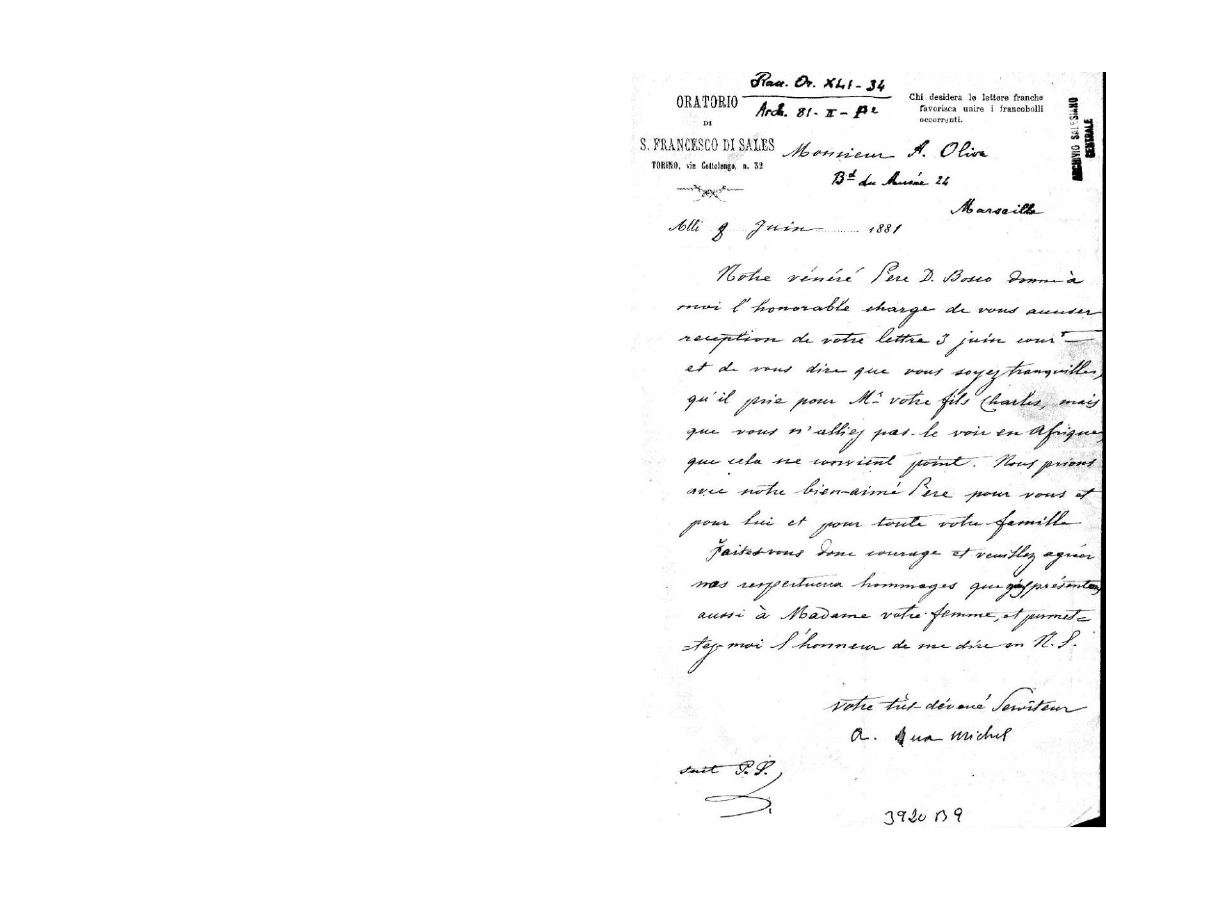 Racc. Or. XLI - 34
Arch. 81 - II -
ORATORIO
DI
S. FRANCESCO DI SALES
TORINO, via Cottolengo, n. 32
Chi desidera le lettere franche
favorisca unire i francobolli
occorrenti.
ARCHIVIO SALESIANO
CENTRALE
Monsieur A. Olive
Bd du Musée 24
Marseille
Alli 9 Juin 1881
Notre vénéré Père D. Bosco donne à
moi l'honorable charge de vous accuser
reception de votre lettre 3 juin cour.t
et de vous dire que vous soyez tranquilles,
qu'il prie pour Mr votre fils Charles, mais
que vous n'alliez pas le voir en Afrique,
que cela ne convient point. Nous prions
avec notre bien-aimé Père pour vous et
pour lui et pour toute votre famille
Faites-vous donc courage et veuillez agréer
nos respectueux hommages que présentez
aussi à Madame votre femme, et permet=
=tez-moi l'honneur de me dire en N. S.
votre très-dévoué Serviteur
a. Rua Michel
suit P.S.
3920 B 9